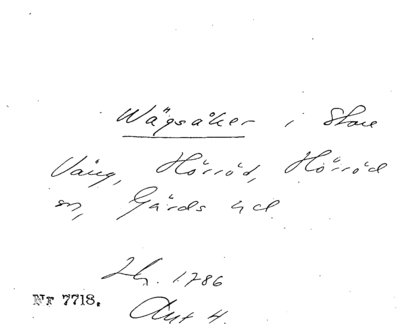 Wägsåker i Stora
Vång, Hörröd, Hörröd
sn, Gärds hd.
Lh. 1786
Akt 4.
Nr 7718.